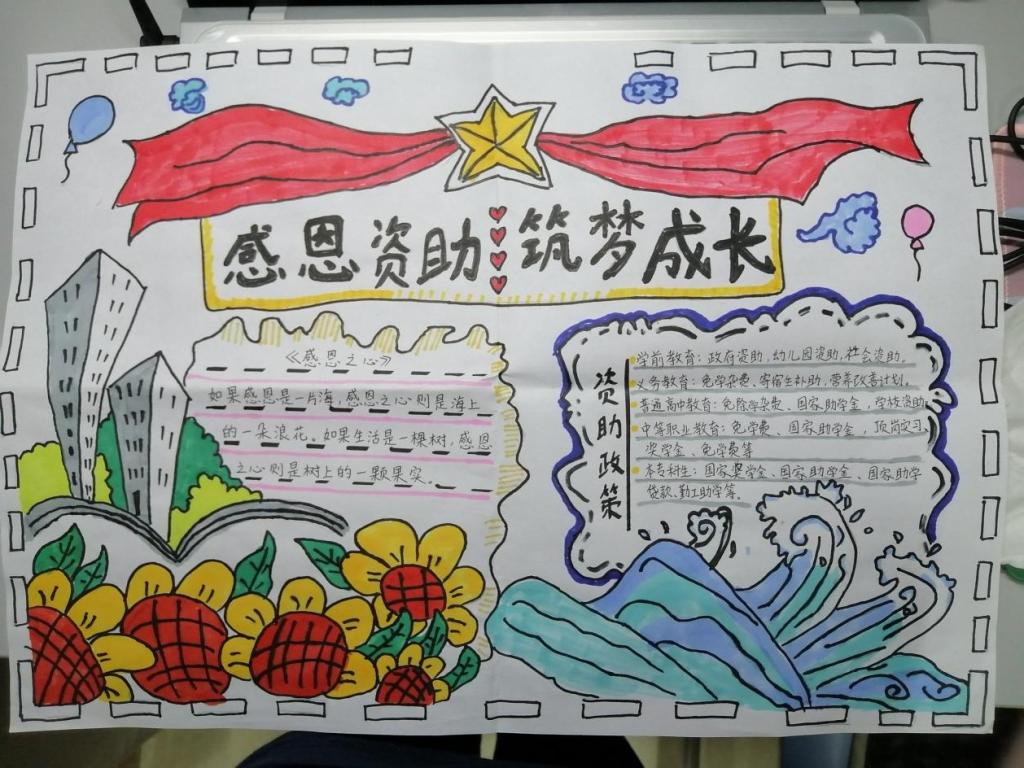 感恩资助 筑梦成长
《感恩之心》
如果感恩是一片海,感恩之心则是海上
的一朵浪花。如果生活是一棵树,感恩
之心则是树上的一颗果实。
资助政策
学前教育:政府资助,幼儿园资助,社会资助。
义务教育:免学杂费、寄宿生补助,营养改善计划。
普通高中教育:免除学杂费、国家助学金,学校资助
中等职业教育:免学费、国家助学金,顶岗实习、
奖学金、免学费等
本专科生:国家奖学金、国家助学金、国家助学
贷款、勤工助学等。